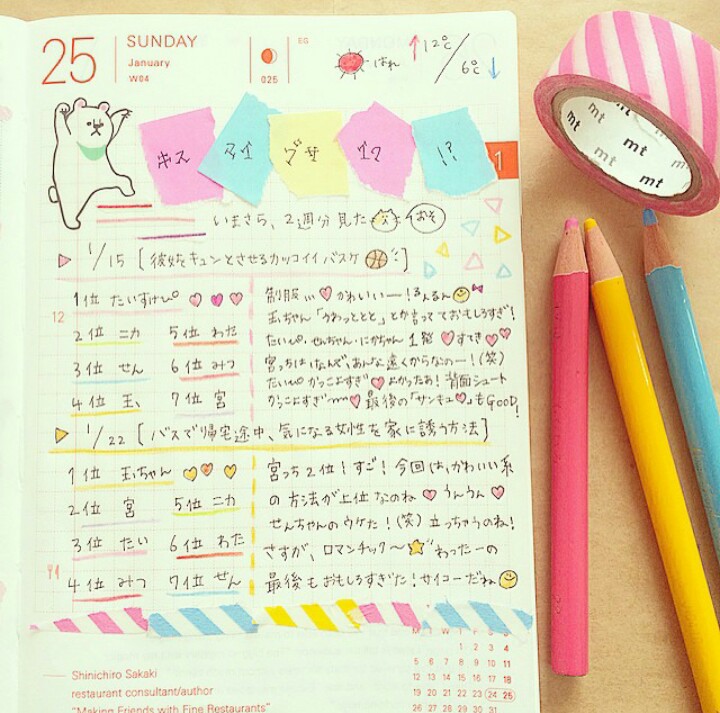 25 SUNDAY January W04 025 EG はれ ↑12℃/6℃↓
キス マイ ブサ イク !?
1
いまさら、2週分見た おそ
1/15 [彼女をキュンとさせるカッコイイバスケ]
12
1位 たいすけ
2位 ニカ 5位 わた
3位 せん 6位 みつ
4位 玉 7位 宮
制服 かわいいー!るんるん
玉ちゃん「うわっととと」とか言ってておもしろすぎ!
たいぴ、せんちゃん、にかちゃん 1発 すてき
宮っちはなんで、あんな遠くからなのー!(笑)
たいぴ かっこよすぎ よかったあ!背面シュート
かっこよすぎ 最後の「サンキュ♡」もGOOD!
1/22 [バスで帰宅途中、気になる女性を家に誘う方法]
1位 玉ちゃん
2位 宮 5位 ニカ
3位 たい 6位 わた
4位 みつ 7位 せん
宮っち2位!すご!今回は、かわいい系
の方法が上位なのね うんうん
せんちゃんのウケた!(笑)立っちゃうのね!
さすが、ロマンチック〜 わったーの
最後もおもしろすぎた!サイコーだね
Shinichiro Sakaki
restaurant consultant/author
"Making Friends with Fine Restaurants"
M T W T F S S
1 2 3 4
5 6 7 8 9 10 11
12 13 14 15 16 17 18
19 20 21 22 23 24 25
26 27 28 29 30 31
mt mt mt mt mt